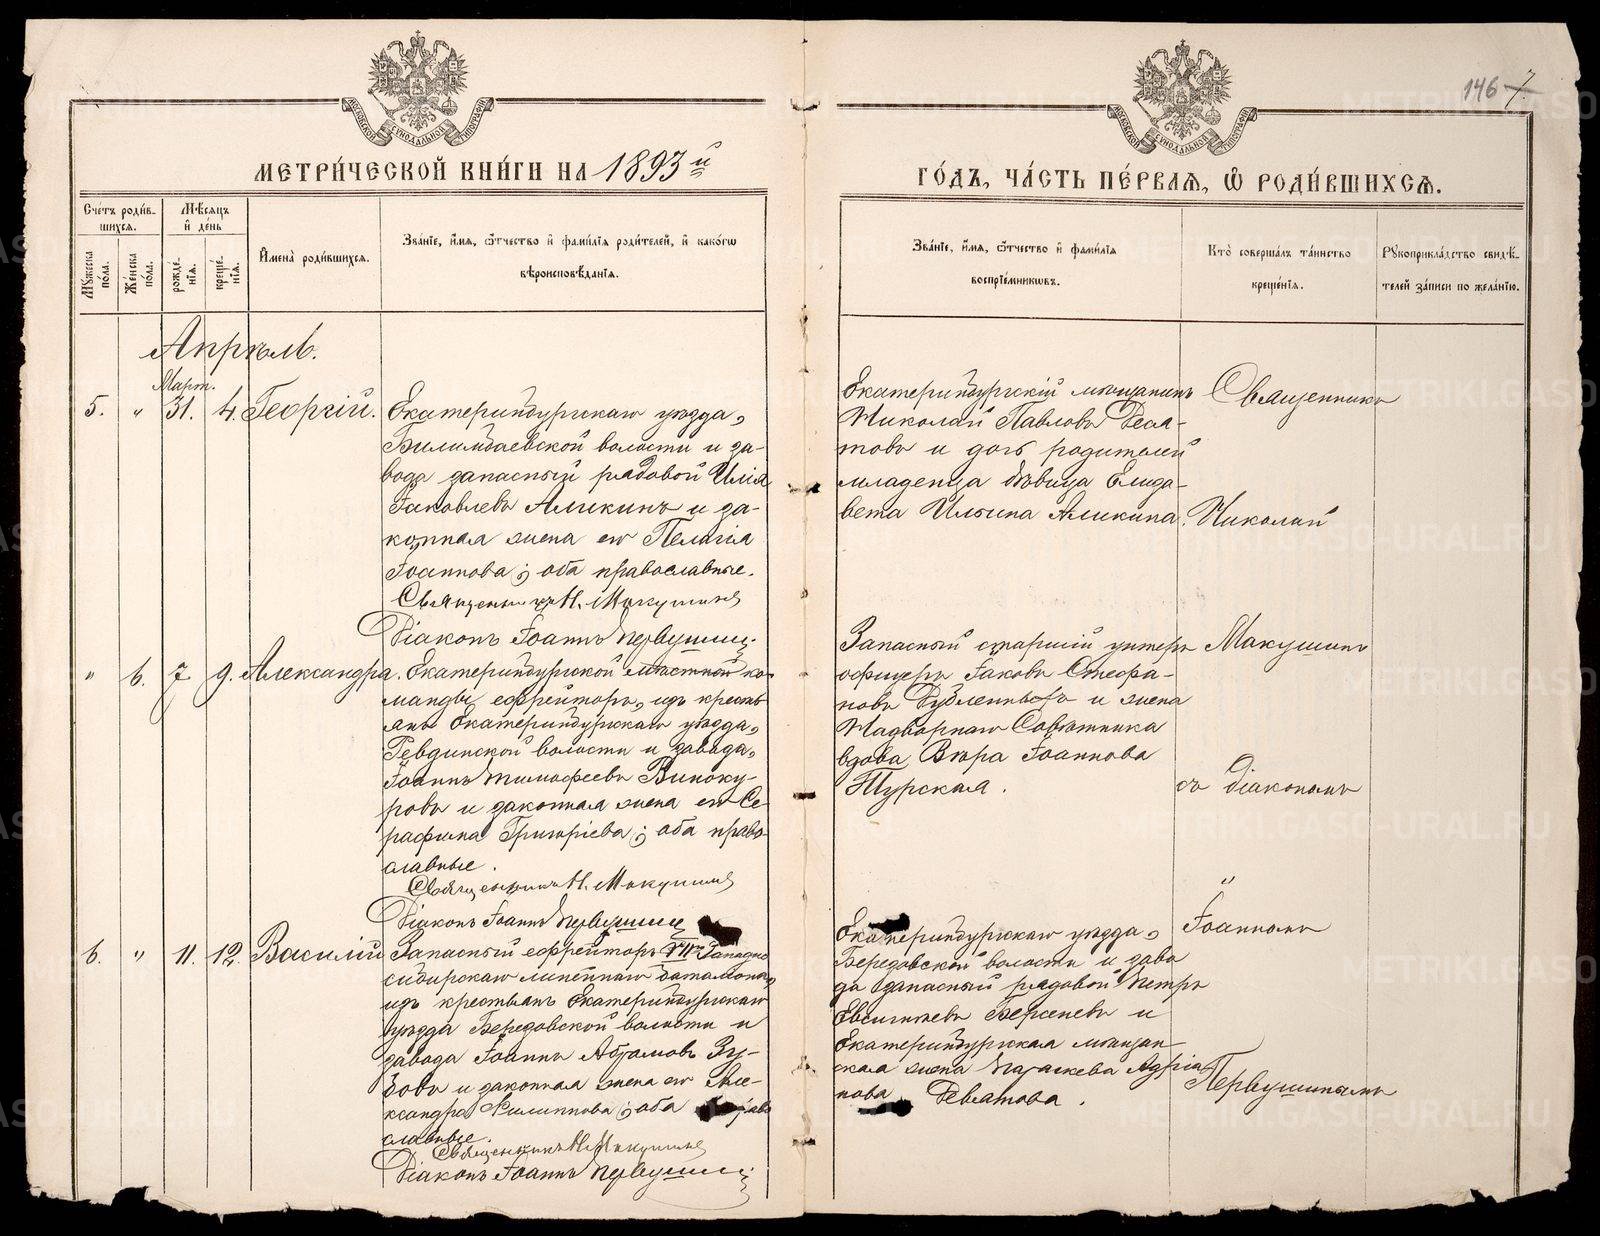 146 7.
МЕТРИ́ЧЕСКОЙ КНИ́ГИ НА 1893й
ГО́ДЪ, ЧА́СТЬ ПЕ́РВАЯ, Ѡ РОДИ́ВШИХСЯ.
Сче́тъ роди́в-
шихся.
Мѣсяцъ
и де́нь
Му́жеска пола.
Же́нска по́ла.
рожде́-
нія.
креще́-
нія.
Имена̀ роди́вшихся.
Зва́ніе, и́мя, о́тчество и фами́лія роди́телей, и како́гѡ
вѣроисповѣ́данія.
Зва́ніе, и́мя, о́тчество и фами́лія
воспріе́мникѡвъ.
Кто̀ соверша́лъ та́инство
креще́нія.
Рукоприкла́дство свидѣ́-
телей за́писи по жела́нію.
Апрѣль.
Март.
5. „ 31. 4. Георгій.
Екатеринбургскаго уѣзда,
Билимбаевской волости и за-
вода запасный рядовой Илія
Іаковлевъ Аликинъ и за-
конная жена его Пелагія
Іоаннова; оба православные.
Священникъ Н. Макушинъ
Діаконъ Іоаннъ Первушинъ
Екатеринбургскій мѣщанинъ
Николай Павловъ Деся-
товъ и дочь родителей
младенца дѣвица Елиза-
вета Ильина Аликина.
Священникъ
Николай
„ 6. 7 9. Александра.
Екатеринбургской мѣстной ко-
манды ефрейторъ, изъ кресть
янъ Екатеринбургскаго уѣзда,
Ревдинской волости и завода,
Іоаннъ Тимофеевъ Виноку-
ровъ и законная жена его Се-
рафима Григоріева; оба право-
славные.
Священникъ Н. Макушинъ
Діаконъ Іоаннъ Первушинъ
Запасный старшій унтеръ
офицеръ Іаковъ Стефа-
новъ и жена
Надворнаго Совѣтника
вдова Вѣра Іоаннова
Турская.
Макушинъ
съ діакономъ
6. „ 11. 12. Василій
Запасный ефрейторъ VIIго Западно
сибирскаго линейнаго баталіона,
изъ крестьянъ Екатеринбургскаго
уѣзда Березовской волости и
завода Іоаннъ Абрамовъ Зу-
бовъ и законная жена его Але-
ксандра Филиппова; оба право
славные.
Священникъ Н. Макушинъ
Діаконъ Іоаннъ Первушинъ
Екатеринбургскаго уѣзда,
Березовской волости и заво
да запасный рядовой Петръ
Евсигніевъ Берсеневъ и
Екатеринбургская мѣщан-
ская жена Параскева Адріа
нова Девятова.
Іоанномъ
Первушинымъ